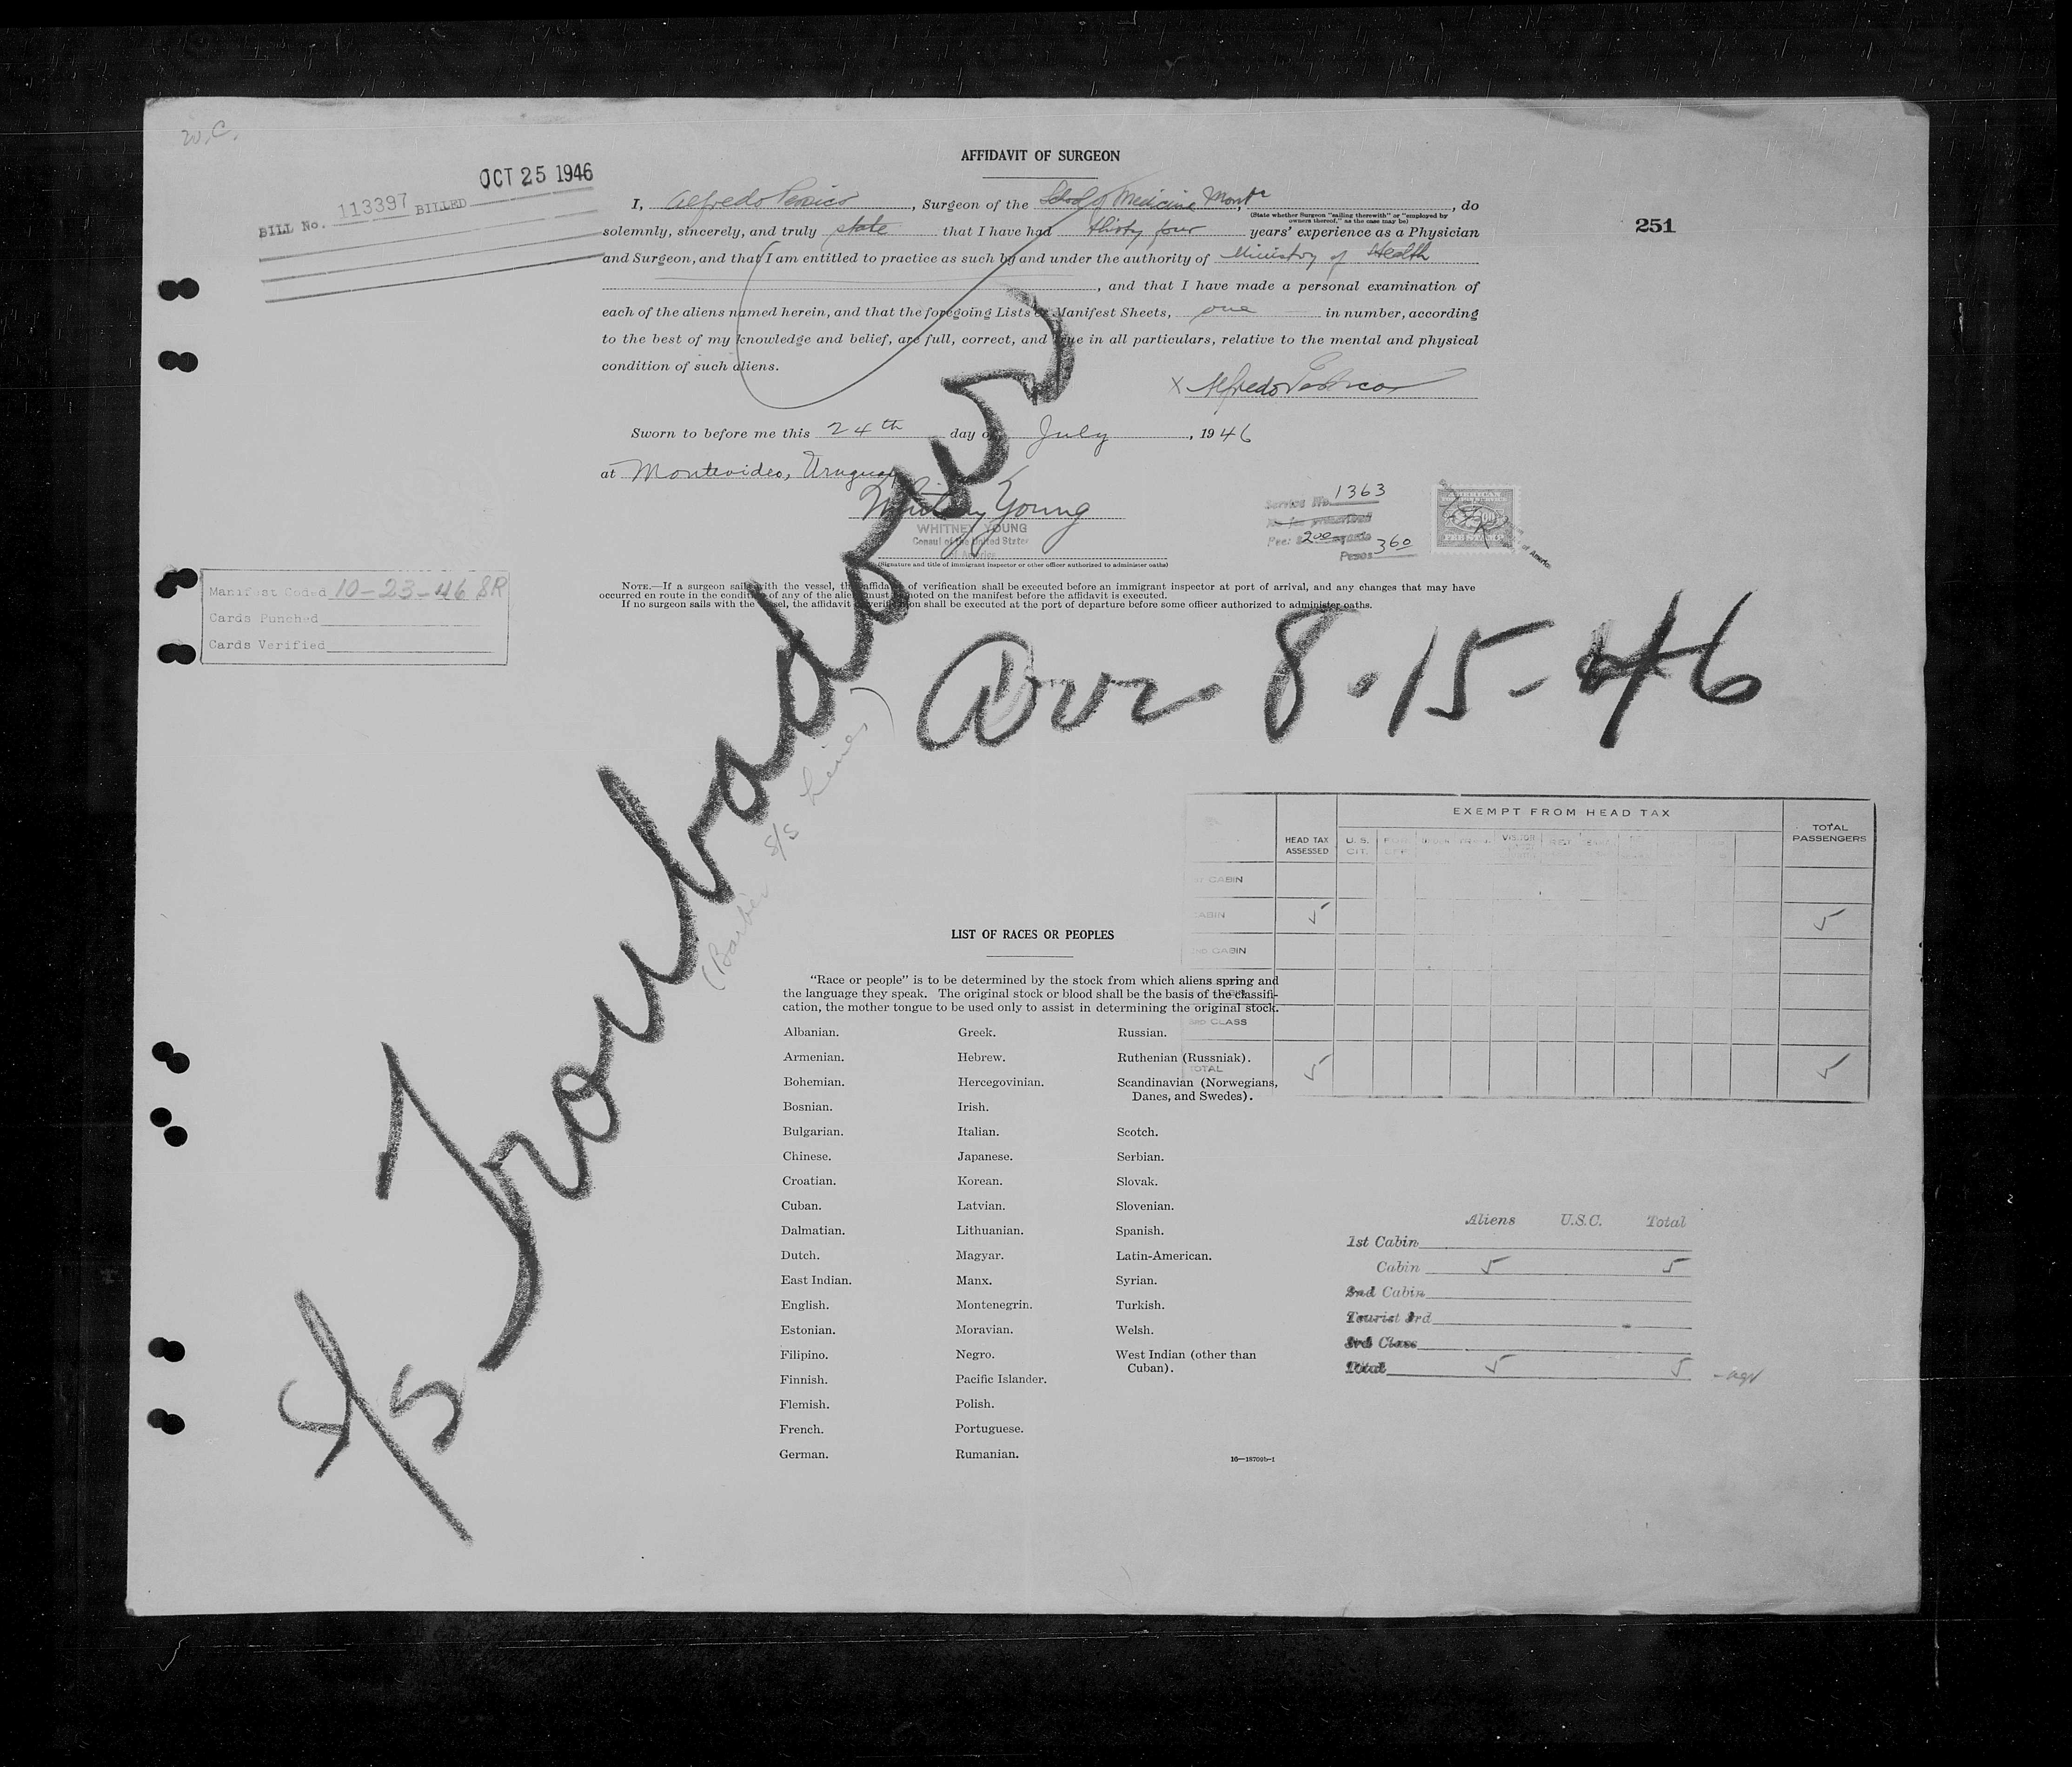 w.C.
OCT 25 1946
BILL No. 113397 BILLED
251
AFFIDAVIT OF SURGEON
I, Alfredo , Surgeon of the School of Medicine Montº , do
(State whether Surgeon "sailing therewith" or "employed by
owners thereof," as the case may be)
solemnly, sincerely, and truly state that I have had thirty four years' experience as a Physician
and Surgeon, and that I am entitled to practice as such by and under the authority of Ministry of Health
, and that I have made a personal examination of
each of the aliens named herein, and that the foregoing Lists or Manifest Sheets, one in number, according
to the best of my knowledge and belief, are full, correct, and true in all particulars, relative to the mental and physical
condition of such aliens.
X Alfredo
Sworn to before me this 24th day of July, 1946
at Montevideo, Uruguay
Whitney Young
WHITNEY YOUNG
Consul of the United States
of America
(Signature and title of immigrant inspector or other officer authorized to administer oaths)
Service No. 1363
No fee prescribed
Fee: 200
Pesos 360
AMERICAN
FOREIGN SERVICE
FEE STAMP
NOTE.—If a surgeon sails with the vessel, the affidavit of verification shall be executed before an immigrant inspector at port of arrival, and any changes that may have
occurred en route in the condition of any of the aliens must be noted on the manifest before the affidavit is executed.
If no surgeon sails with the vessel, the affidavit of verification shall be executed at the port of departure before some officer authorized to administer oaths.
Manifest Coded 10-23-46 SR
Cards Punched
Cards Verified
S/S Troubadour
(Barber S/S Lines)
Arr 8-15-46
EXEMPT FROM HEAD TAX
HEAD TAX
ASSESSED
U.S.
CIT.
TOTAL
PASSENGERS
CABIN
CABIN 5 5
2nd CABIN
3rd CLASS
TOTAL 5 5
LIST OF RACES OR PEOPLES
"Race or people" is to be determined by the stock from which aliens spring and
the language they speak. The original stock or blood shall be the basis of the classifi-
cation, the mother tongue to be used only to assist in determining the original stock.
Albanian.
Armenian.
Bohemian.
Bosnian.
Bulgarian.
Chinese.
Croatian.
Cuban.
Dalmatian.
Dutch.
East Indian.
English.
Estonian.
Filipino.
Finnish.
Flemish.
French.
German.
Greek.
Hebrew.
Hercegovinian.
Irish.
Italian.
Japanese.
Korean.
Latvian.
Lithuanian.
Magyar.
Manx.
Montenegrin.
Moravian.
Negro.
Pacific Islander.
Polish.
Portuguese.
Rumanian.
Russian.
Ruthenian (Russniak).
Scandinavian (Norwegians,
Danes, and Swedes).
Scotch.
Serbian.
Slovak.
Slovenian.
Spanish.
Latin-American.
Syrian.
Turkish.
Welsh.
West Indian (other than
Cuban).
16—18709b-1
Aliens U.S.C. Total
1st Cabin
Cabin 5 5
2nd Cabin
Tourist 3rd
3rd Class
Total 5 5